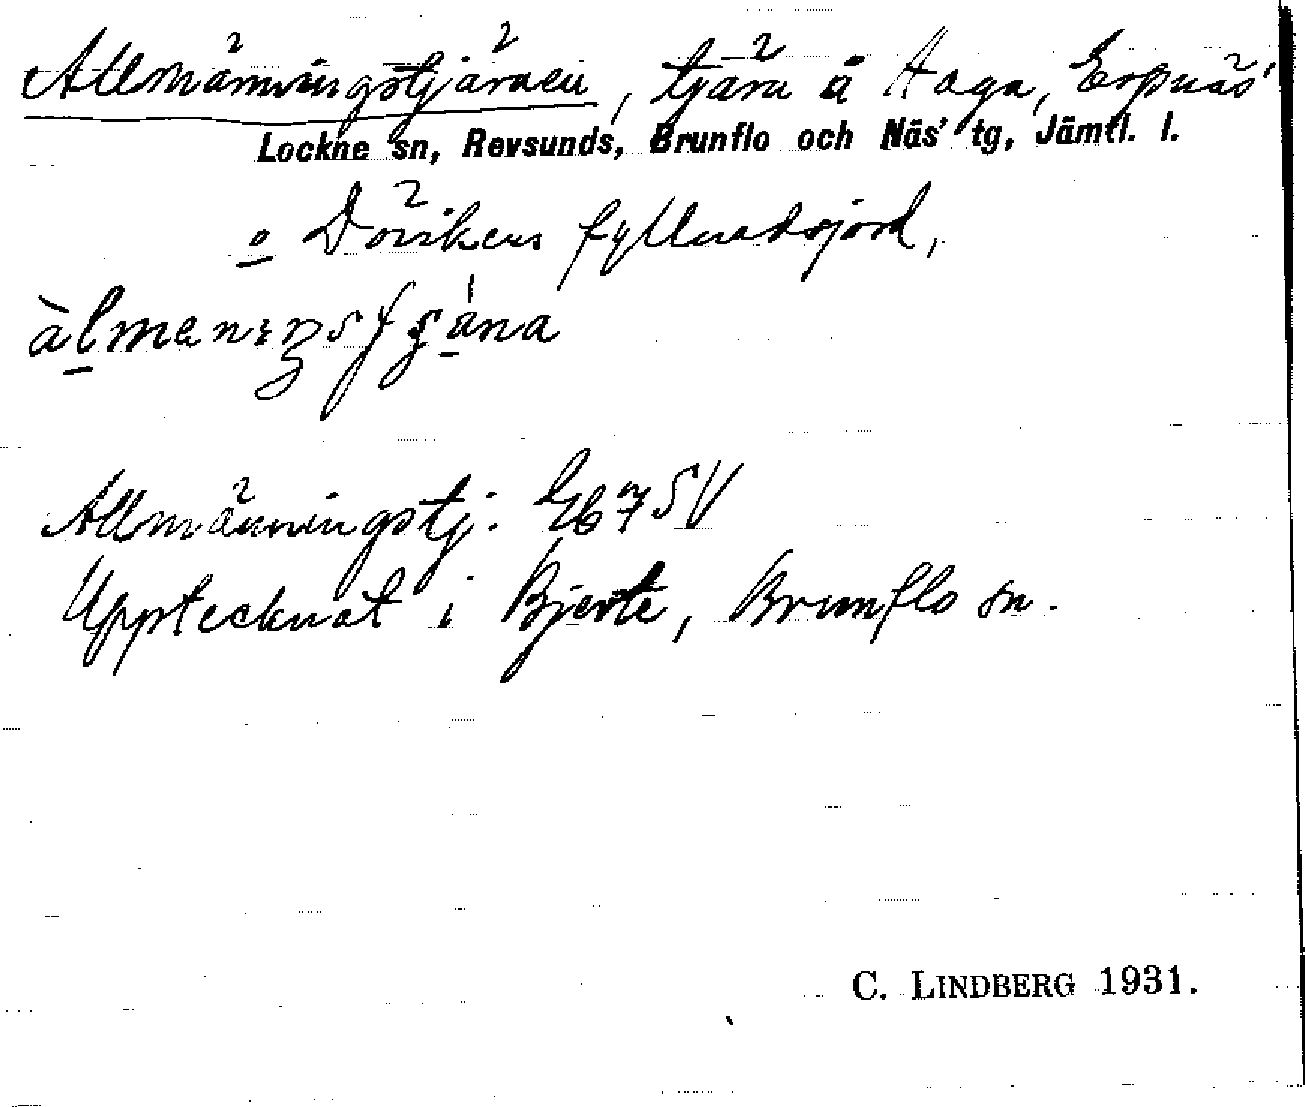 Allmänningstjärnen, tjärn å Haga, Erpnäs'
Lockne sn, Revsunds, Brunflo och Näs' tg, Jämtl. l.
o Dövikens fyllnadsjord,
Allmänningstj. Eb 7 SV
Upptecknat i Bjerte, Brunflo sn.
C. LINDBERG 1931.